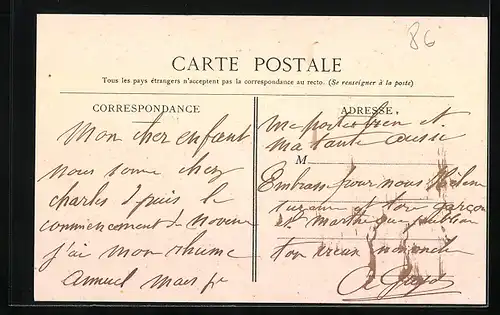 86
CARTE POSTALE
Tous les pays étrangers n'acceptent pas la correspondance au recto. (Se renseigner à la poste)
CORRESPONDANCE
Mon cher enfant
nous some chez
charles dpuis le
commencement de novem
j'ai mon rhume
anuel mais je
ADRESSE
me porte bien et
ma tante aussi
M
Embrasse pour nous Hélène
et ton garçon
et Marthe que
ton vieux